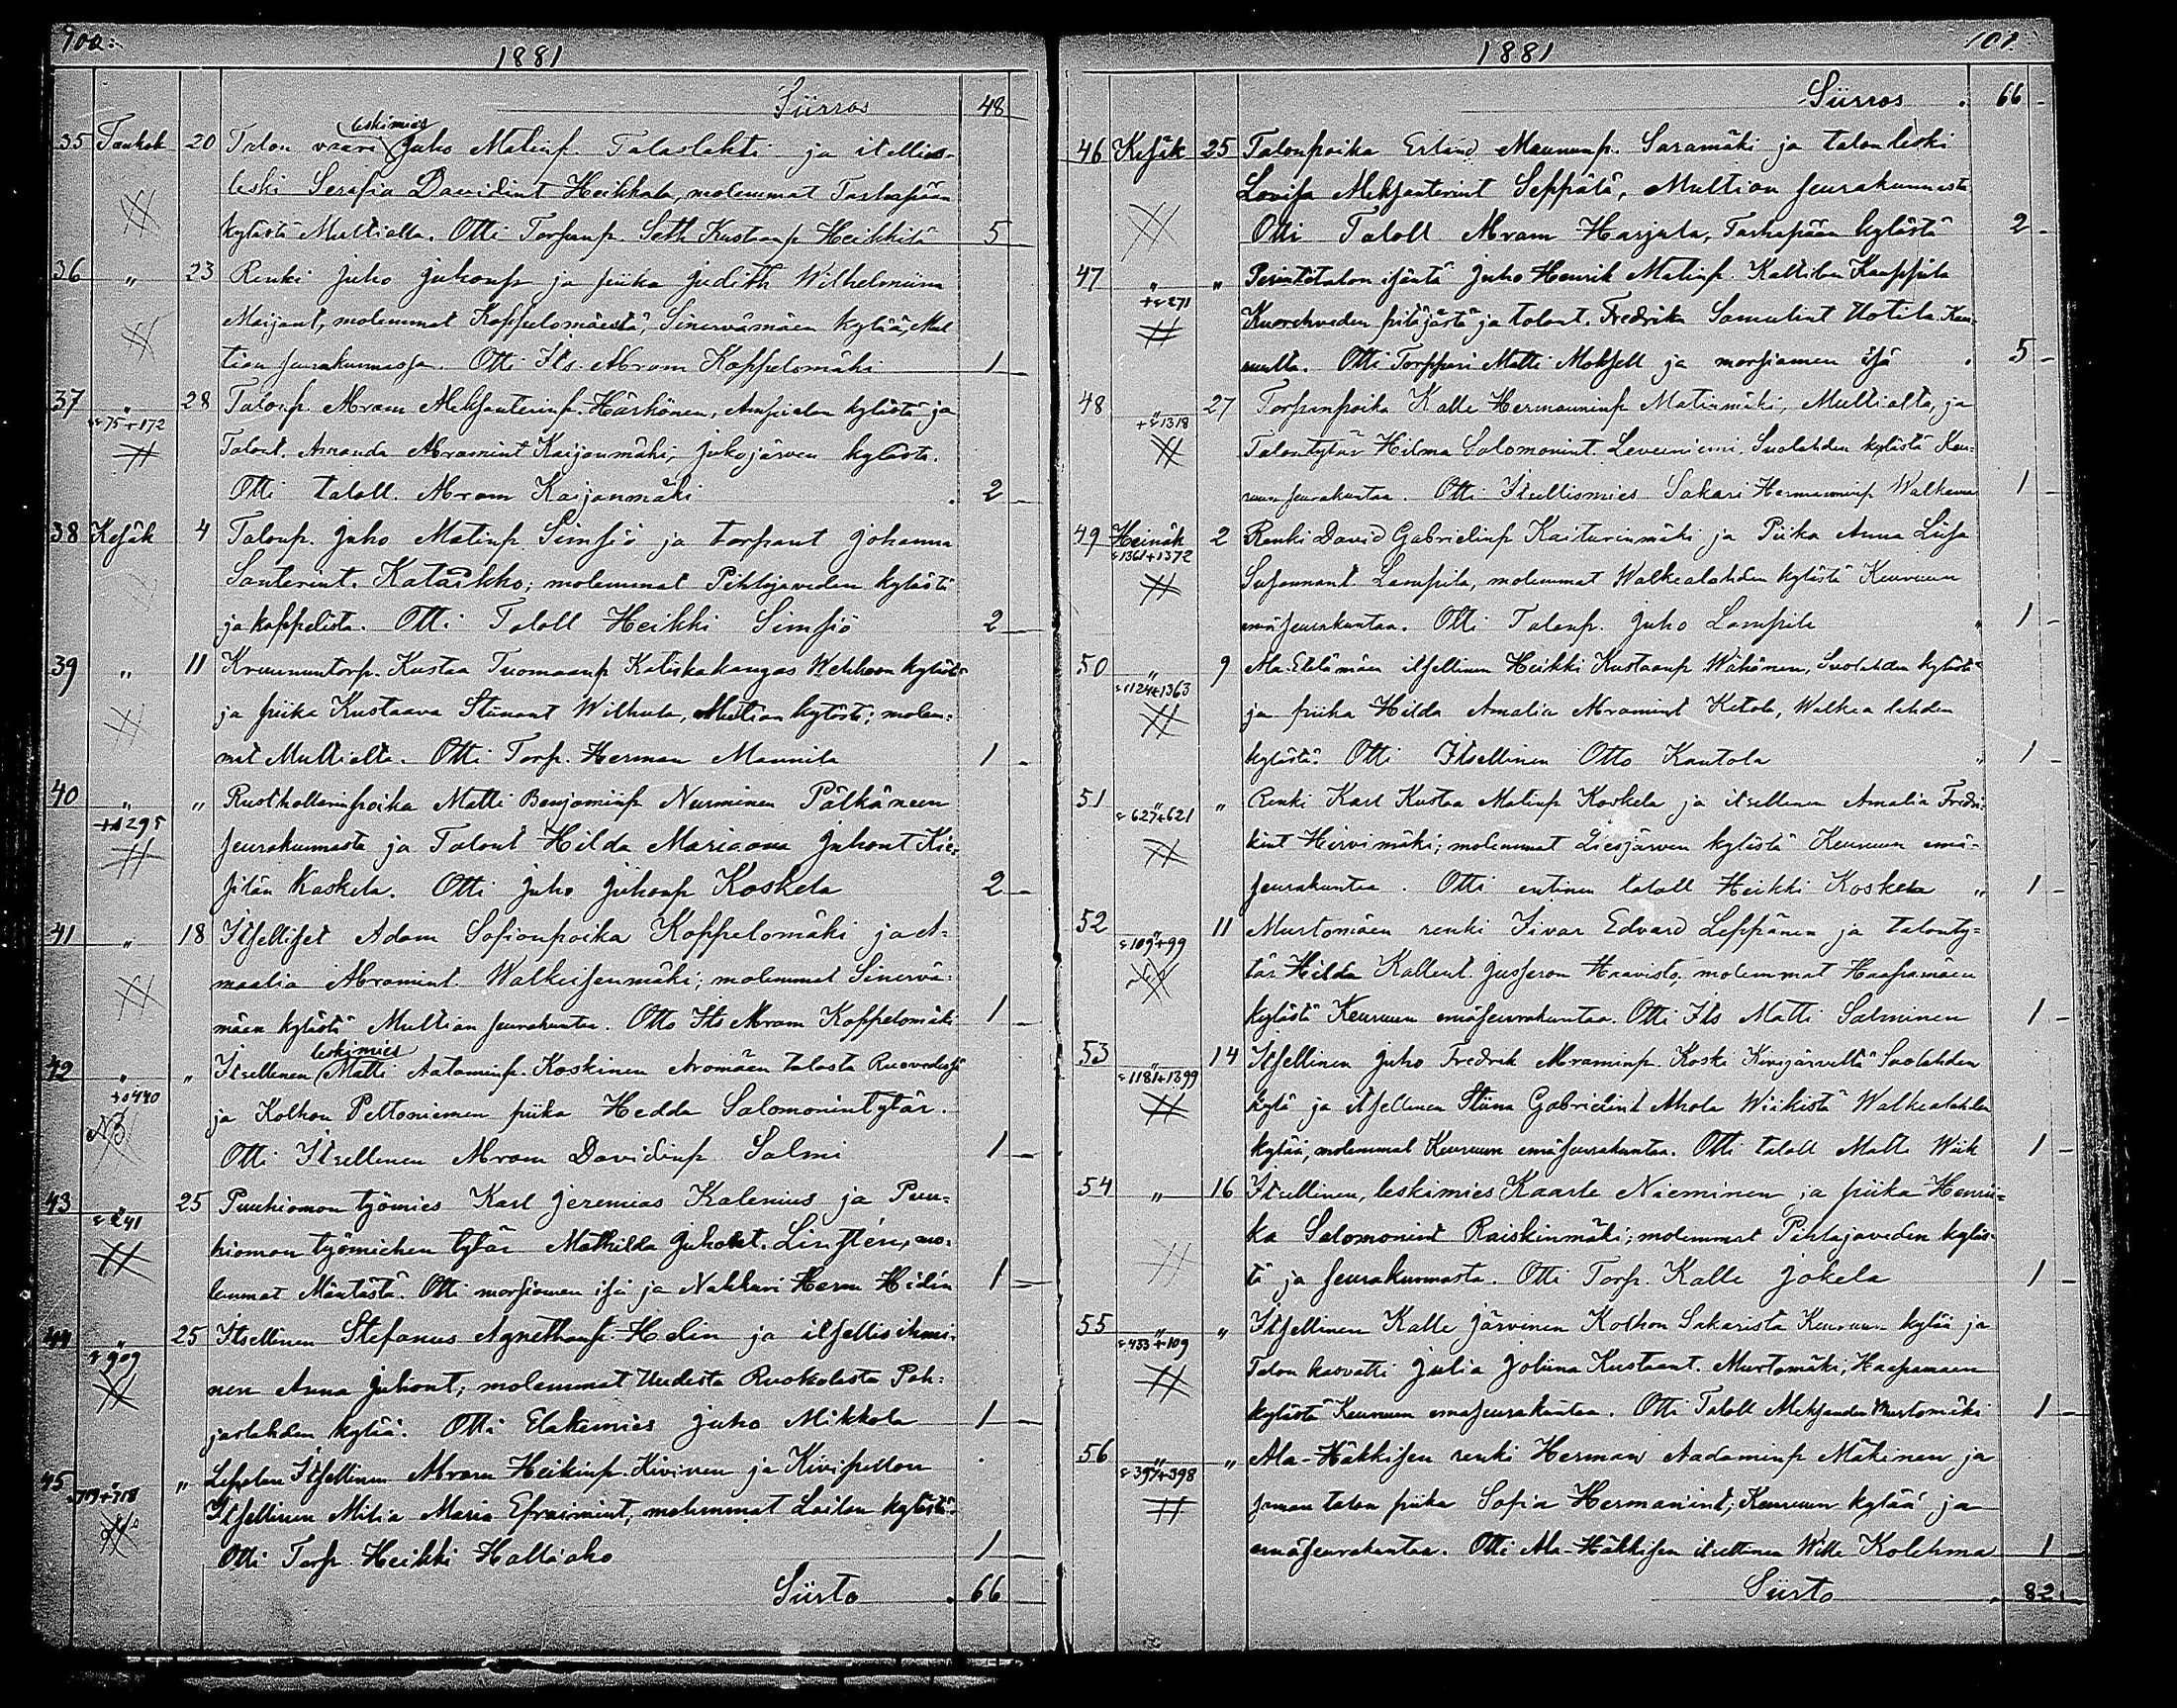 100.
1881
Siirros 48
35 Toukok 20 Talon vaari leskimies Juho Matinp. Talaslahti ja itellis-
leski Serafia Davidint Heikkala, molemmat Tarhapään
kylästä Multialla. Otti Torpanp. Seth Kustaanp Heikkilä 5
36 " 23 Renki Juho Juhonp ja piika Judith Wilhelmiina
Maijant, molemmat Koppelomäestä, Sinervämäen kylää, Mul
tian seurakunnassa. Otti Its. Abram Koppelomäki 1
37 " 28 Talonp. Abram Aleksanterinp. Härkönen, Ampialan kylästä ja
s 75+172 Talont. Amanda Abramint Kaijanmäki, Jukojärven kylästä.
Otti taloll. Abram Kaijanmäki 2
38 Kesäk 4 Talonp. Juho Matinp Simsiö ja torpant Johanna
Santerint. Kataikko; molemmat Pihlajaveden kylästä
ja kappelista. Otti Taloll Heikki Simsiö 2
39 " 11 Kruununtorp. Kustaa Tuomaanp Katiskakangas Wehkoon kylästä
ja piika Kustaava Stiinant Wilhula, Multian kylästä; molem-
mat Multialta. Otti Torp. Herman Maunila 1
40 " " Rusthollarinpoika Matti Benjaminp Nurminen Pälkäneen
+s 295 seurakunnasta ja Talont Hilda Mariaana Juhont Kie-
silän Kaskela. Otti Juho Juhonp Koskela 2
41 " 18 Itselliset Adam Sofianpoika Koppelomäki ja A-
maalia Abramint. Walkeisenmäki; molemmat Sinervä-
mäen kylästä Multian seurakuntaa. Otto Its Abram Koppelomäki 1
42 " " Itsellinen leskimies Matti Aataminp. Koskinen Aromäen talosta Ruovedessä
+s 440 ja Kolhon Peltoniemen piika Hedda Salomonintytär.
Otti Itsellinen Abram Davidinp Salmi 1
43 " 25 Puuhiomon työmies Karl Jeremias Kalenius ja Puu-
s 241 hiomon työmiehen tytär Mathilda Juhont. Linstén, mo-
lemmat Mäntästä. Otti morsiamen isä ja Nahkuri Herm Hidén 1
44 " 25 Itsellinen Stefanus Agnethanp. Helin ja itsellisihmi-
s 909 nen Anna Juhont; molemmat Uudesta Ruokolasta Poh-
jaslahden kylää. Otti Elakemies Juho Mikkola 1
45 " Leppolan Itsellinen Abram Heikinp. Kivinen ja Kivipellon
719+718 Itsellinen Milia Maria Efraimint, molemmat Loilan kylästä.
Otti Torp. Heikki Hallaaho 1
Siirto 66
101
1881
Siirros 66
46 Kesäk 25 Talonpoika Erland Maununp. Saramäki ja talon leski
Lovisa Aleksanterint Seppälä, Multian seurakunnasta
Otti Taloll Abram Harjula, Tarhapään kylästä 2
47 " " Perintötalon isäntä Juho Henrik Matinp. Kallilan Kaappila
+s 271 Kuorehveden pitäjästä ja talont. Fredrika Samulint Uotila Keu-
ruulta. Otti Torppari Matti Moksell ja morsiamen isä 5
48 " 27 Torpanpoika Kalle Hermanninp Matinmäki, Multialta, ja
+s 1318 Talontytär Hilma Salomonint. Leveeniemi, Suolahden kylästä Keu-
ruun seurakuntaa. Otti Itsellismies Sakari Hermanninp Walkama 1
49 Heinäk 2 Renki David Gabrielinp Kaiturinmäki ja Piika Anna Liisa
s 1361+1372 Susannant Lampila, molemmat Walkealahden kylästä Keuruun
emäseurakuntaa. Otti Talonp. Juho Lampila 1
50 " 9 Ala-Ehtämäen itsellinen Heikki Kustaanp Wähänen, Suolahden kylästä
s 1124+1363 ja piika Hilda Amalia Abramint Ketola, Walkea lahden
kylästä. Otti Itsellinen Otto Kautola 1
51 " " Renki Karl Kustaa Matinp Koskela ja itsellinen Amalia Fredri-
s 627+621 kint Hirvimäki; molemmat Liesjärven kylästä Keuruun emä-
seurakuntaa. Otti entinen taloll Heikki Koskela 1
52 " 11 Murtomäen renki Iivar Edvard Leppänen ja talonty-
s 109+99 tär Hilda Kallent. Jusseron Haavisto, molemmat Haapamäen
kylästä Keuruun emäseurakuntaa. Otti Its Matti Salminen 1
53 " 14 Itsellinen Juho Fredrik Abraminp. Koski Kivijärveltä Suolahden
s 1181+1399 kylä ja itsellinen Stiina Gabrielint Ahola Wiikistä Walkealahden
kylää, molemmat Keuruun emäseurakuntaa. Otti taloll Matti Wiik 1
54 " 16 Itsellinen, leskimies Kaarle Nieminen ja piika Henrii-
ka Salomonint Raiskinmäki; molemmat Pihlajaveden kyläs-
tä ja seurakunnasta. Otti Torp. Kalle Jokela 1
55 " " Itsellinen Kalle Järvinen Kolhon Sakarista Keuruun kylää ja
s 433+109 Talon kasvatti Julia Joliina Kustaant. Murtomäki, Haapamäen
kylästä Keuruun emäseurakuntaa. Otti Taloll Aleksander Murtomäki 1
56 " " Ala-Häkkisen renki Herman Aadaminp Mäkinen ja
s 397+398 saman talon piika Sofia Hermanint; Keuruun kylää ja
emäseurakuntaa. Otti Ala-Häkkisen itsellinen Wille Kolehma 1
Siirto 82